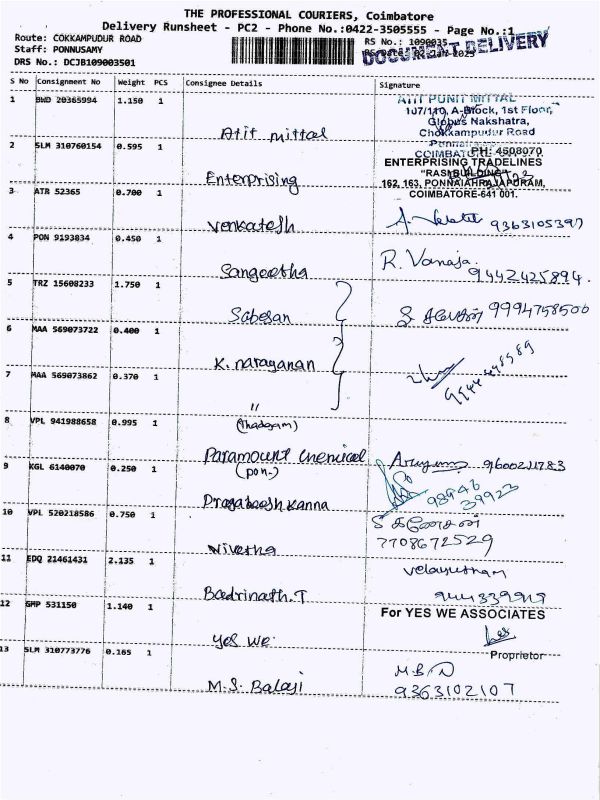 THE PROFESSIONAL COURIERS, Coimbatore
Delivery Runsheet - PC2 - Phone No.:0422-3505555 - Page No.:1
Route: COKKAMPUDUR ROAD
RS No.: 1090035
Staff: PONNUSAMY
DOCUMENT DELIVERY
DRS No.: DCJB109003501
S No Consignment No Weight PCS Consignee Details Signature
1 BWD 20365994 1.150 1 Atit mittal
ATIT PUNIT MITTAL
107/110, A-Block, 1st Floor,
Globus Nakshatra,
Chokkampudur Road
COIMBATORE PH: 4508070
2 SLM 310760154 0.595 1 Enterprising
ENTERPRISING TRADELINES
"RASI BUILDING"
162, 163, PONNAIAHRAJAPURAM,
COIMBATORE-641 001.
3 ATR 52365 0.700 1 Venkatesh
9363105397
4 PON 9193834 0.450 1 Sangeetha
R. Vanaja.
9442425894.
5 TRZ 15608233 1.750 1 Sabesan
9994758500
6 MAA 569073722 0.400 1 K. narayanan
7 MAA 569073862 0.370 1 "
8 VPL 941988658 0.995 1 (thadagam)
Paramount chemical
9600211783
9 KGL 6140070 0.250 1 (pon-)
Pragateesh kanna
98946
39923
10 VPL 520218586 0.750 1 Nivetha
S கணேசன்
7708672529
11 EDQ 21461431 2.135 1 Badrinath.T
Velayutham
12 GMP 531150 1.140 1 Yes We
For YES WE ASSOCIATES
Proprietor
13 SLM 310773776 0.165 1 M.S. Balaji
9363102107